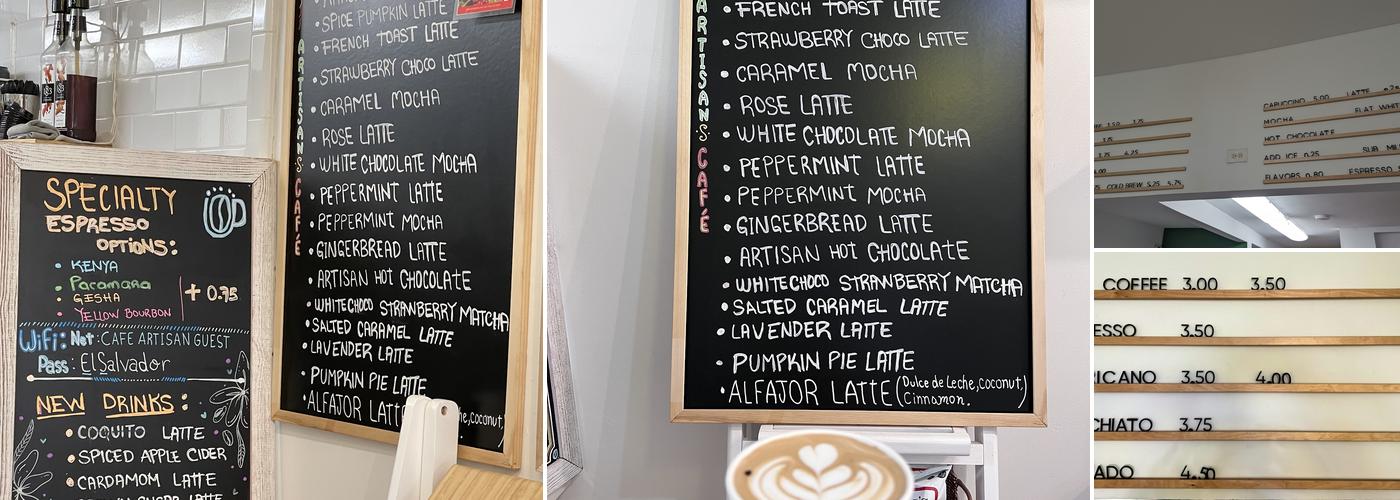 SPECIALTY
ESPRESSO
OPTIONS:
• KENYA
• Pacamara
• GESHA
• YELLOW BOURBON
+ 0.75
Wifi: Net: CAFE ARTISAN GUEST
Pass: ElSalvador
NEW DRINKS:
• COQUITO LATTE
• SPICED APPLE CIDER
• CARDAMOM LATTE
ARTISAN'S CAFÉ
SPICE PUMPKIN LATTE
• FRENCH TOAST LATTE
• STRAWBERRY CHOCO LATTE
• CARAMEL MOCHA
• ROSE LATTE
• WHITE CHOCOLATE MOCHA
• PEPPERMINT LATTE
• PEPPERMINT MOCHA
• GINGERBREAD LATTE
• ARTISAN HOT CHOCOLATE
• WHITECHOCO STRANBERRY MATCHA
• SALTED CARAMEL LATTE
• LAVENDER LATTE
• PUMPKIN PIE LATTE
• ALFAJOR LATTE
coconut,)
ARTISAN'S CAFÉ
• FRENCH TOAST LATTE
• STRAWBERRY CHOCO LATTE
• CARAMEL MOCHA
• ROSE LATTE
• WHITE CHOCOLATE MOCHA
• PEPPERMINT LATTE
• PEPPERMINT MOCHA
• GINGERBREAD LATTE
• ARTISAN HOT CHOCOLATE
• WHITECHOCO STRANBERRY MATCHA
• SALTED CARAMEL LATTE
• LAVENDER LATTE
• PUMPKIN PIE LATTE
• ALFAJOR LATTE (Dulce de Leche, coconut,
Cinnamon.)
CAPUCCINO 5.00 LATTE
MOCHA FLAT WHIT
HOT CHOCOLATE
ADD ICE 0.25 SUB MIL
FLAVORS 0.80 ESPRESSO
COLD BREW 5.25 5.75
COFFEE 3.00 3.50
ESSO 3.50
RICANO 3.50 4.00
CHIATO 3.75
ADO 4.50